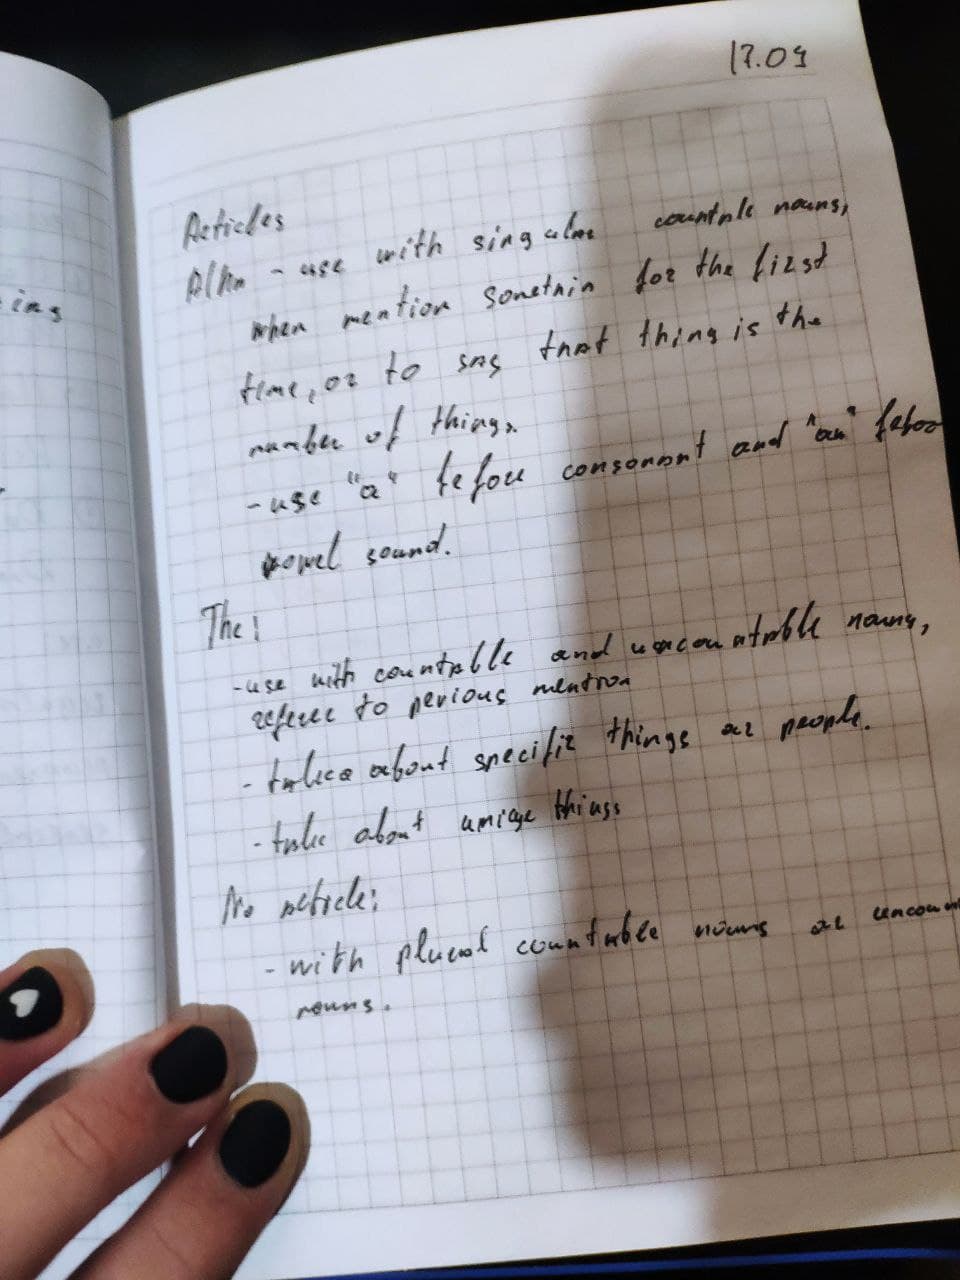 17.09
Articles
A/An - use with singular countable nouns,
when mention somethin for the first
time, or to say that thing is the
number of things.
- use "a" before consonant and "an" befor
vowel sound.
The:
- use with countable and uncountable nouns,
referee to pervious mention
- talk about specific things or people.
- talk about uniqe things
No article:
- with plural countable nouns or uncoun
nouns.
ing